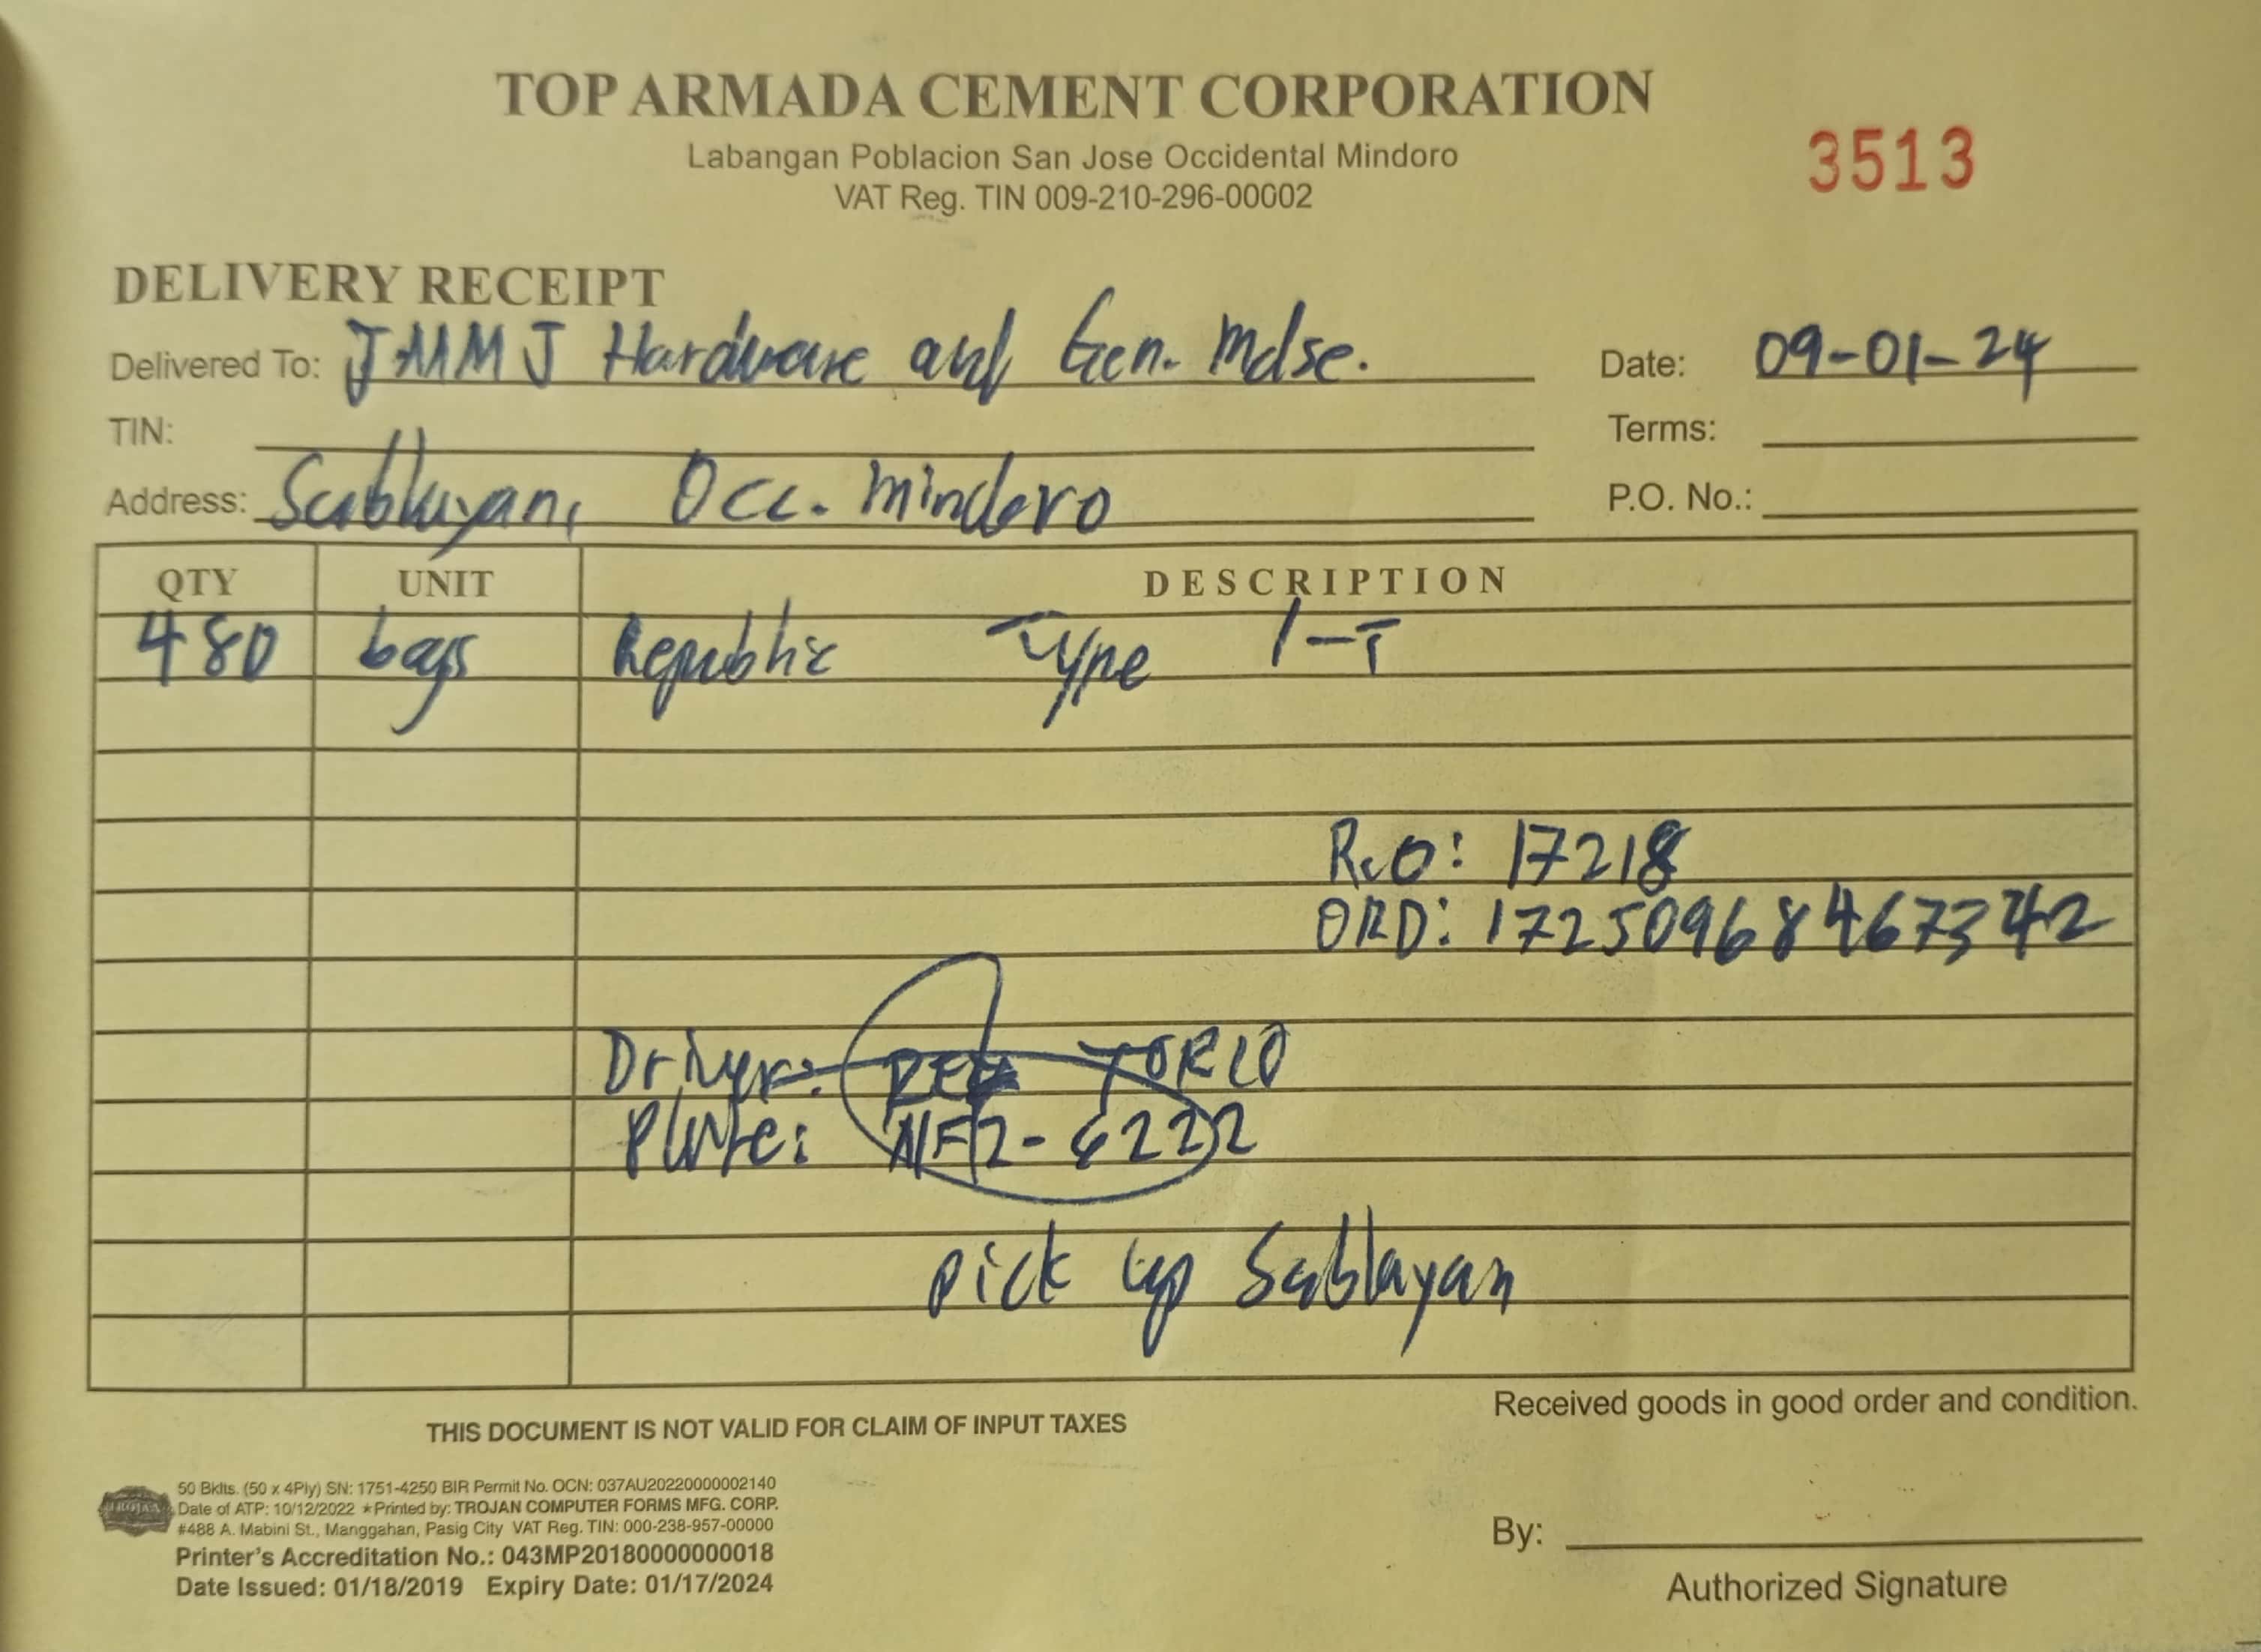 TOP ARMADA CEMENT CORPORATION
Labangan Poblacion San Jose Occidental Mindoro
VAT Reg. TIN 009-210-296-00002
3513
DELIVERY RECEIPT
Delivered To: JMMJ Hardware and Gen. Mdse. Date: 09-01-24
TIN: Terms:
Address: Sablayan, Occ. Mindoro P.O. No.:
QTY UNIT DESCRIPTION
480 bags Republic Type 1-T
R.O: 17218
ORD: 172509684467342
Driver: TORIO
Plate: 
pick up Sablayan
Received goods in good order and condition.
THIS DOCUMENT IS NOT VALID FOR CLAIM OF INPUT TAXES
TROJAN
50 Bklts. (50 x 4Ply) SN: 1751-4250 BIR Permit No. OCN: 037AU20220000002140
Date of ATP: 10/12/2022 ★Printed by: TROJAN COMPUTER FORMS MFG. CORP.
#488 A. Mabini St., Manggahan, Pasig City VAT Reg. TIN: 000-238-957-00000
Printer's Accreditation No.: 043MP20180000000018
Date Issued: 01/18/2019 Expiry Date: 01/17/2024
By:
Authorized Signature